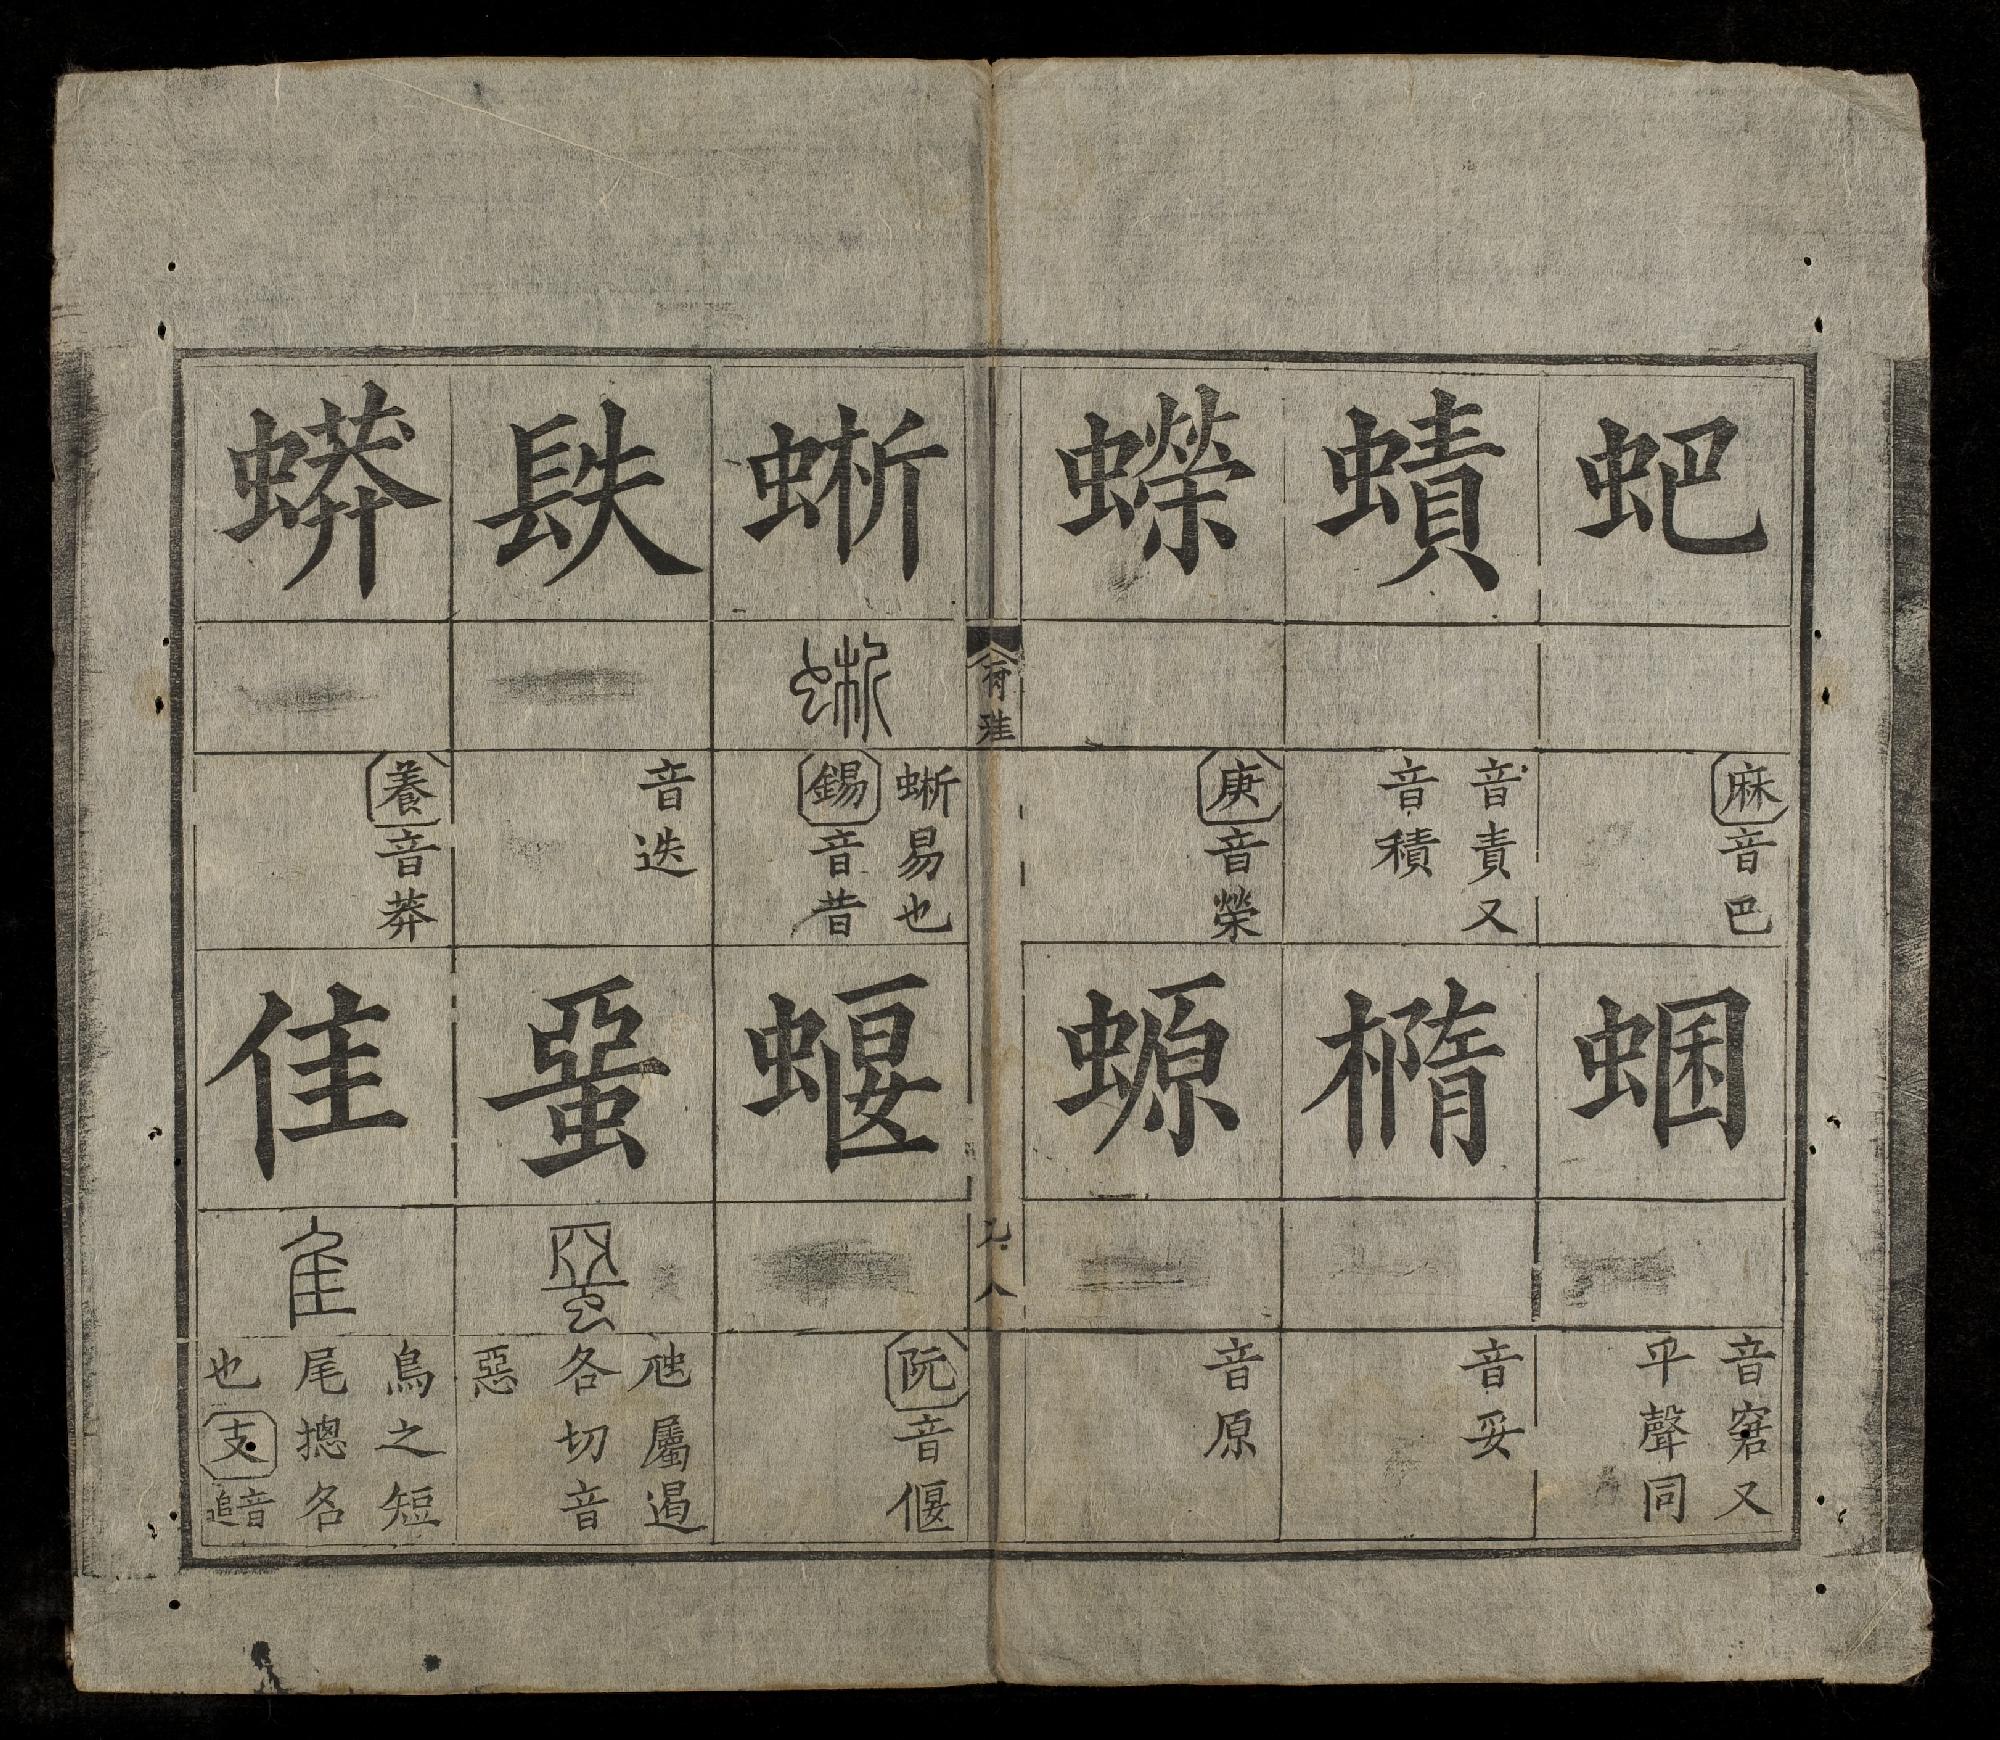 蚆
麻音巴
蜠
音窘又
平聲同
𧐐
音責又
音積
橢
音妥
蠑
庚音榮
螈
音原
蜥
蜥
蜥易也
錫音昔
蝘
阮音偃
镻
音迭
蝁
蝁
虺屬遏
各切音
惡
蟒
養音莽
隹
隹
鳥之短
尾摠名
也支音追